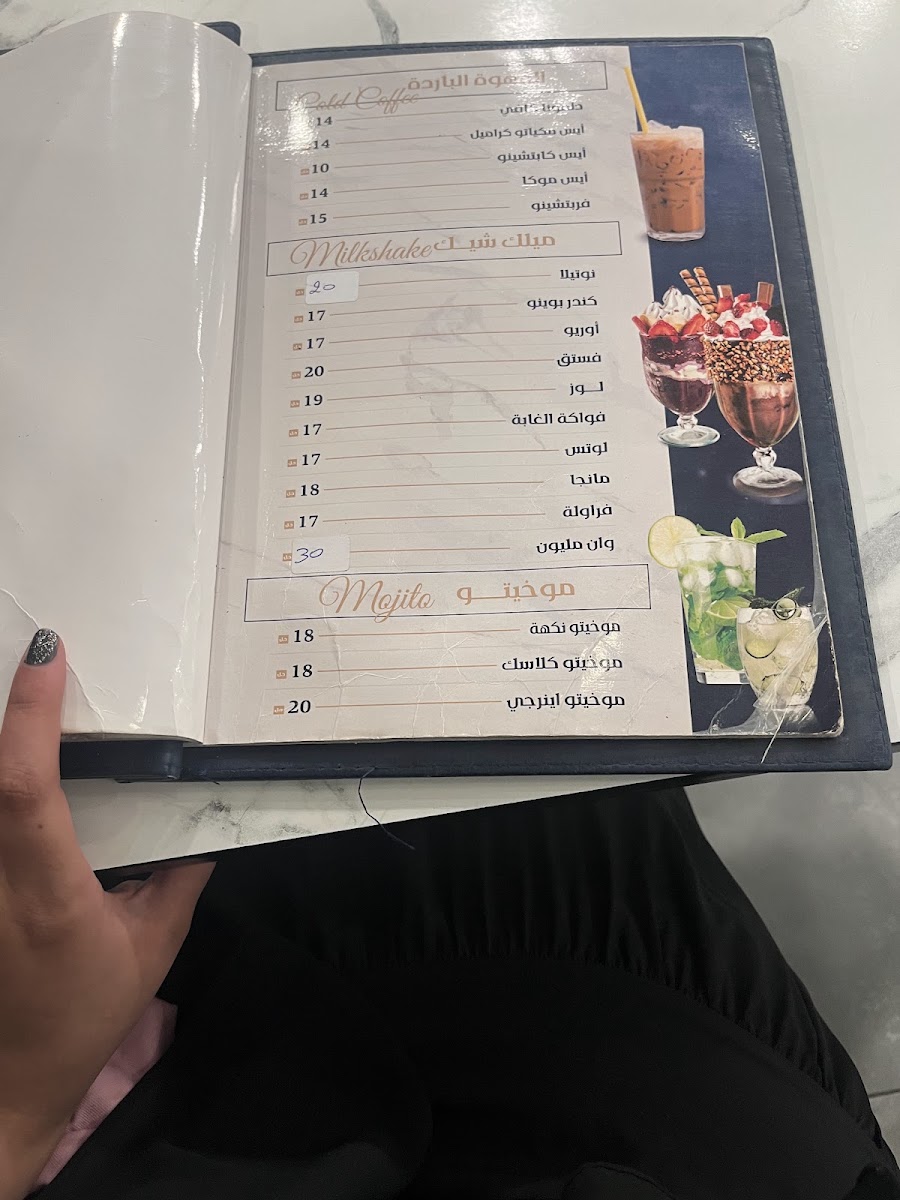 القهوة الباردة Cold Coffee
14
أيس ميكياتو كراميل 14
أيس كابتشينو 10
أيس موكا 14
فربتشينو 15
ميلك شيـك Milkshake
نوتيلا 20
كندر بوينو 17
أوريو 17
فستق 20
لـــوز 19
فواكة الغابة 17
لوتس 17
مانجا 18
فراولة 17
وان مليون 30
موخيتـــو Mojito
موخيتو نكهة 18
موخيتو كلاسك 18
موخيتو اينرجي 20